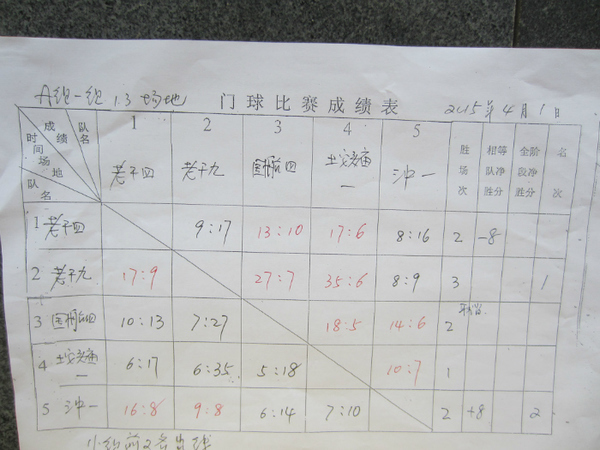 A组一组 1.3 场地 门球比赛成绩表 2015年4月1日
成绩 队名 时间 场地 队名 1 2 3 4 5 胜场次 相等队净胜分 全阶段净胜分 名次
老干四 老干九 一 冲一
1 老干四 9:17 13:10 17:6 8:16 2 -8
2 老干九 17:9 27:7 35:6 8:9 3 1
3 10:13 7:27 18:5 14:6 2
4 一 6:17 6:35 5:18 10:7 1
5 冲一 16:8 9:8 6:14 7:10 2 +8 2
小组前2名出球